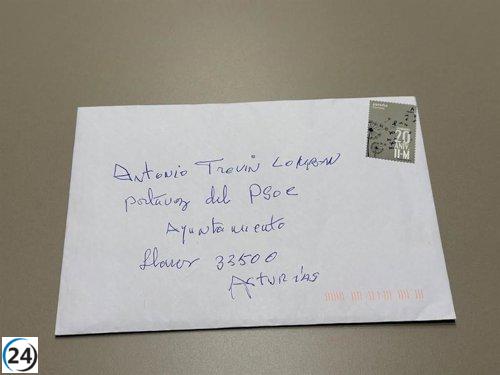 Antonio Trevín Lombán
Portavoz del PSOE
Ayuntamiento
Llanes 33500
Asturias
España
20
ANIV
11-M
24